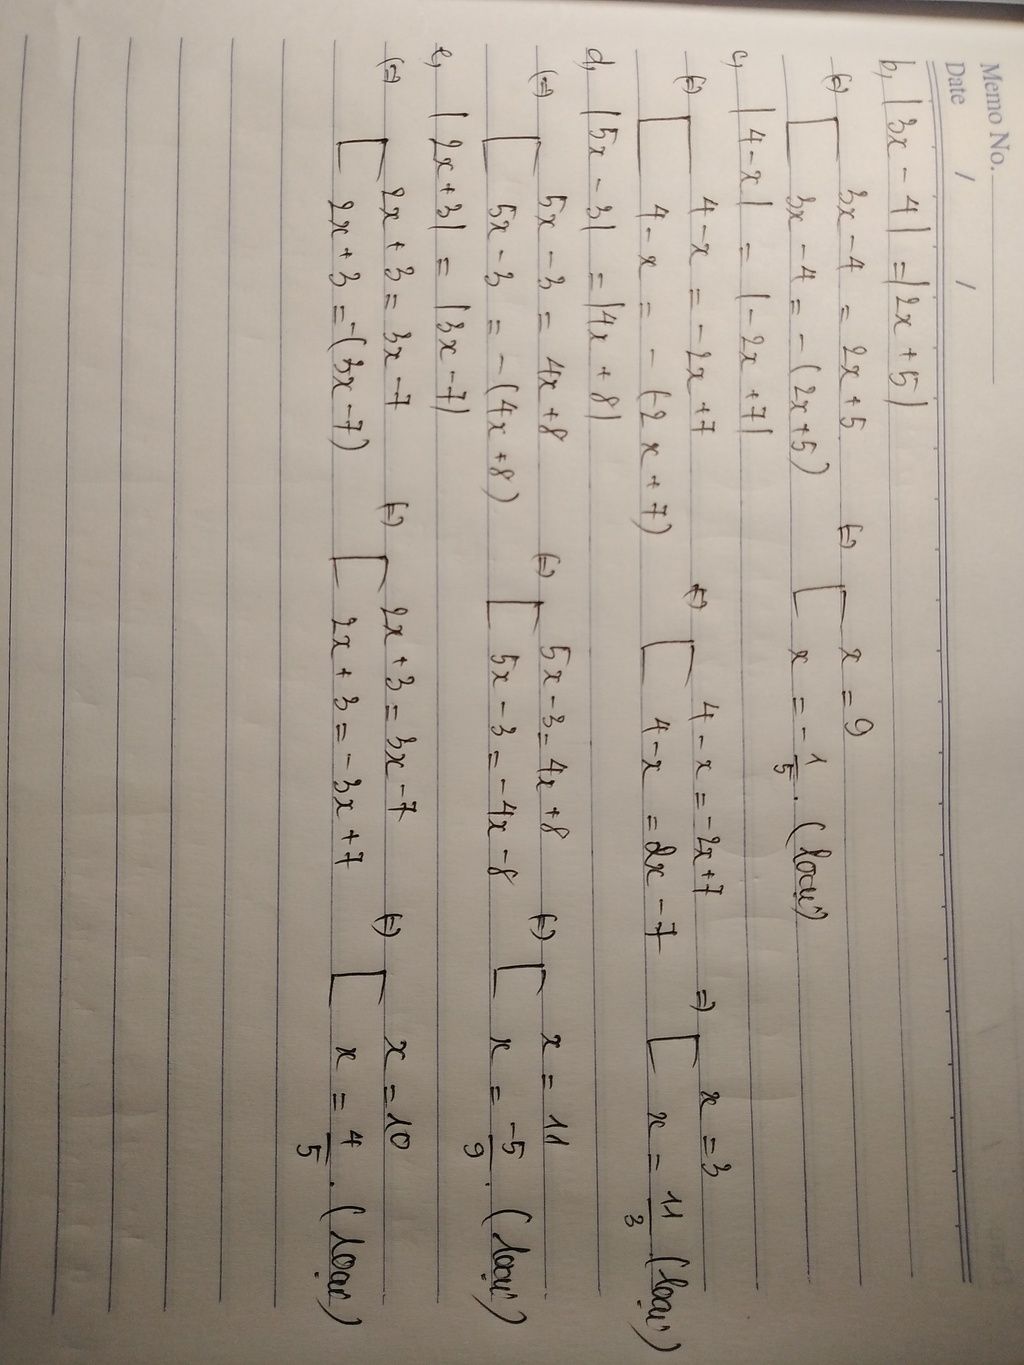 Memo No.
Date / /
b, |3x - 4| = |2x + 5|
(=) [ 3x - 4 = 2x + 5 (=) [ x = 9
3x - 4 = - (2x + 5) x = - 1/5 . (loại)
c, |4 - x| = |- 2x + 7|
(=) [ 4 - x = - 2x + 7 (=) [ 4 - x = - 2x + 7 => [ x = 3
4 - x = - (-2x + 7) 4 - x = 2x - 7 x = 11/3 (loại)
d, |5x - 3| = |4x + 8|
(=) [ 5x - 3 = 4x + 8 (=) [ 5x - 3 = 4x + 8 (=) [ x = 11
5x - 3 = - (4x + 8) 5x - 3 = - 4x - 8 x = -5/9 . (loại)
e, |2x + 3| = |3x - 7|
(=) [ 2x + 3 = 3x - 7 (=) [ 2x + 3 = 3x - 7 (=) [ x = 10
2x + 3 = -(3x - 7) 2x + 3 = - 3x + 7 x = 4/5 . (loại)